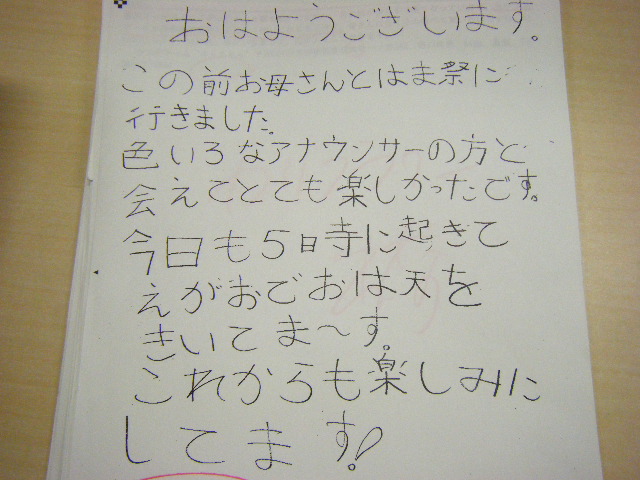 おはようございます。
この前お母さんとはま祭に
行きました。
色いろなアナウンサーの方と
会えてとても楽しかったです。
今日も5時に起きて
えがおでおは天を
きいてま〜す。
これからも楽しみに
してます!